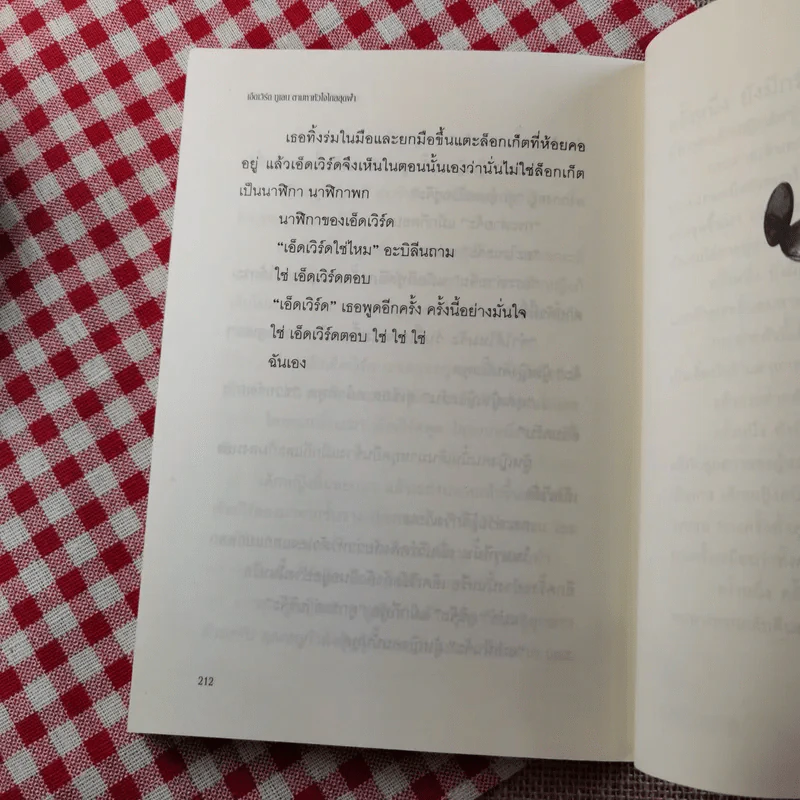 เอ็ดเวิร์ด ทูเลน ตามหาหัวใจไกลสุดฟ้า
เธอทิ้งร่มในมือและยกมือขึ้นแตะล็อกเก็ตที่ห้อยคอ
อยู่ แล้วเอ็ดเวิร์ดจึงเห็นในตอนนั้นเองว่านั่นไม่ใช่ล็อกเก็ต
เป็นนาฬิกา นาฬิกาพก
นาฬิกาของเอ็ดเวิร์ด
“เอ็ดเวิร์ดใช่ไหม” อะบิลีนถาม
ใช่ เอ็ดเวิร์ดตอบ
“เอ็ดเวิร์ด” เธอพูดอีกครั้ง ครั้งนี้อย่างมั่นใจ
ใช่ เอ็ดเวิร์ดตอบ ใช่ ใช่ ใช่
ฉันเอง
212